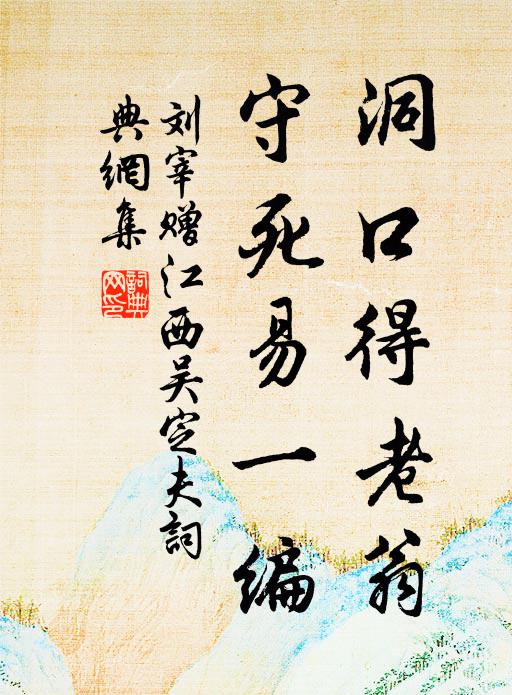 洞口得老翁
守死易一编
刘宰赠江西吴定夫詞
典網集
詞典網印